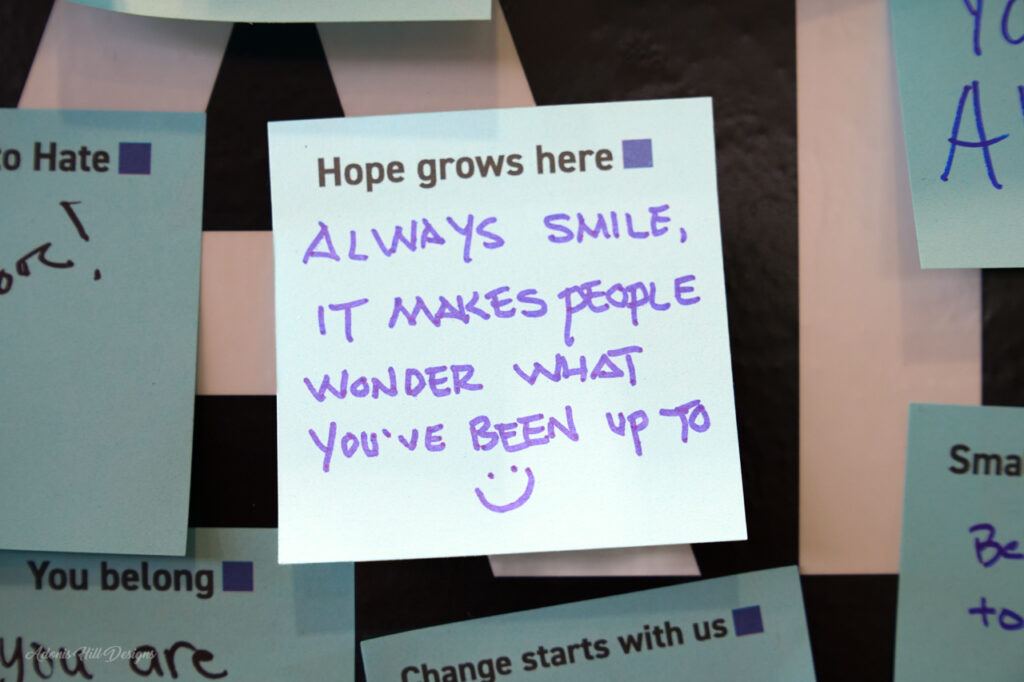 to Hate
Hope grows here
ALWAYS SMILE,
IT MAKES PEOPLE
WONDER WHAT
YOU'VE BEEN UP TO
You belong
you are
Change starts with us
Sma
Be
to
Adonis Hill Designs